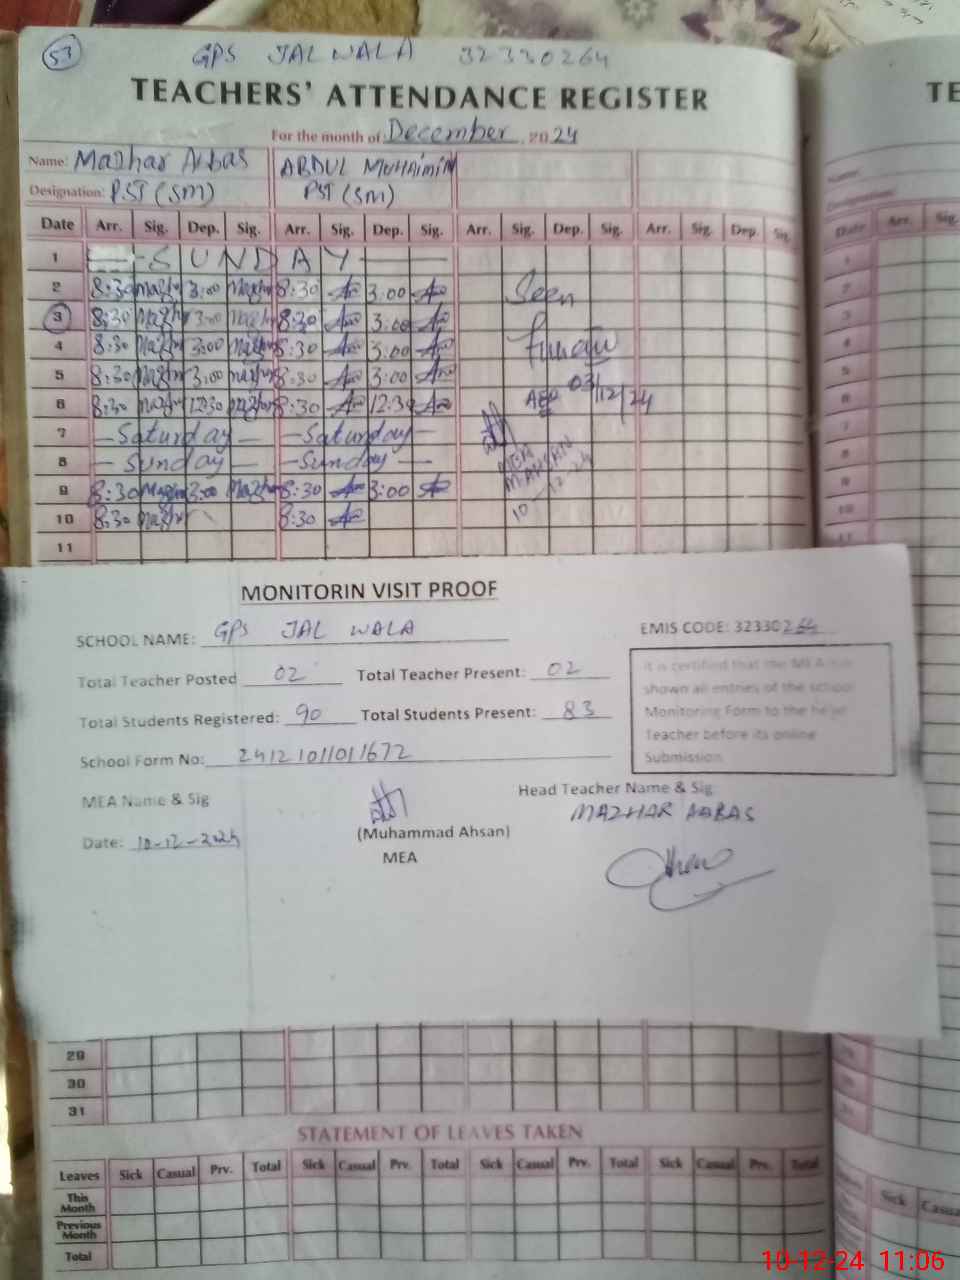 53 GPS JAL WALA 32330264
TEACHERS' ATTENDANCE REGISTER
TE
For the month of December, 2024
Name: Mazhar Abbas ABDUL MUHAIMIN
Designation: PST (SM) PST (SM)
Date Arr. Sig. Dep. Sig. Arr. Sig. Dep. Sig. Arr. Sig. Dep. Sig. Arr. Sig. Dep. Sig. Date Arr. Sig.
1 — SUNDAY —
2 8:30 Mazhr 3:00 Mazhr 8:30 3:00 Seen
3 8:30 Mazhr 3:00 Mazhr 8:30 3:00
4 8:30 Mazhr 3:00 Mazhr 8:30 3:00
5 8:30 Mazhr 3:00 Mazhr 8:30 3:00 03/12/24
6 8:30 Mazhr 12:30 Mazhr 8:30 12:30
7 — Saturday — — Saturday —
8 — Sunday — — Sunday —
9 8:30 Mazhr 3:00 Mazhr 8:30 3:00 MEA AHSAN
10 8:30 Mazhr 8:30 10-12-24
11
MONITORIN VISIT PROOF
SCHOOL NAME: GPS JAL WALA EMIS CODE: 32330264
Total Teacher Posted 02 Total Teacher Present: 02
Total Students Registered: 90 Total Students Present: 83
School Form No: 24121011011672
It is certified that the MEA has
shown all entries of the school
Monitoring Form to the head
Teacher before its online
Submission
MEA Name & Sig Head Teacher Name & Sig
MAZHAR ABBAS
Date: 10-12-2024 (Muhammad Ahsan)
MEA
29
30
31
STATEMENT OF LEAVES TAKEN
Leaves Sick Casual Prv. Total Sick Casual Prv. Total Sick Casual Prv. Total Sick Casual Prv. Total Sick Casual
This Month
Previous Month
Total
10-12-24 11:06